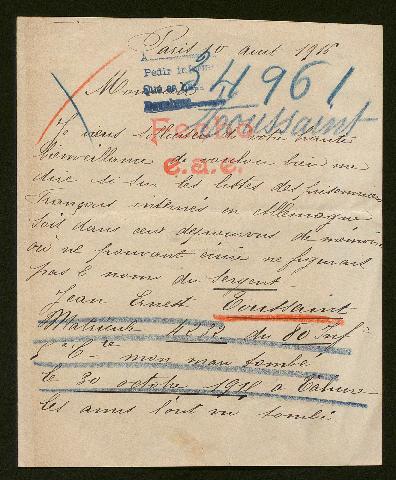 Paris 10 aout 1916
A
Petit
24961
Toussaint
Je viens solliciter de votre haute
bienveillance de vouloir bien me
dire si sur les listes des prisonniers
Français internés en Allemagne
soit dans ceut dépourvus de mémoire
ou ne pouvant écrire ne figurant
pas le nom du sergent
Jean Ernest Toussaint
Matricule 4222 du 80 Inf
C ie mon mari tombé
le 30 octobre 1915 a Tahure
Les amis l'ont vu tombé
e.a.e.